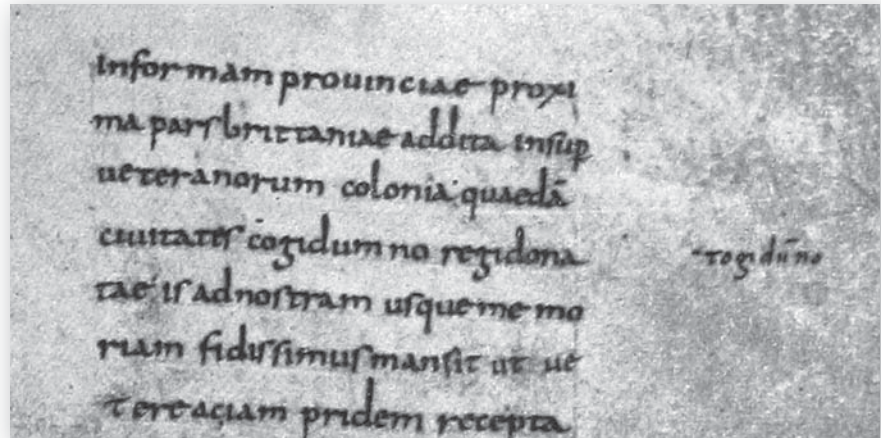 informam prouinciae proxi
ma pars brittaniae addita insup
ueteranorum colonia quaedā
ciuitates cogidumno regi dona
tae is ad nostram usque memo
riam fidissimus mansit ut ue
tere ac iam pridem recepta
togidūno